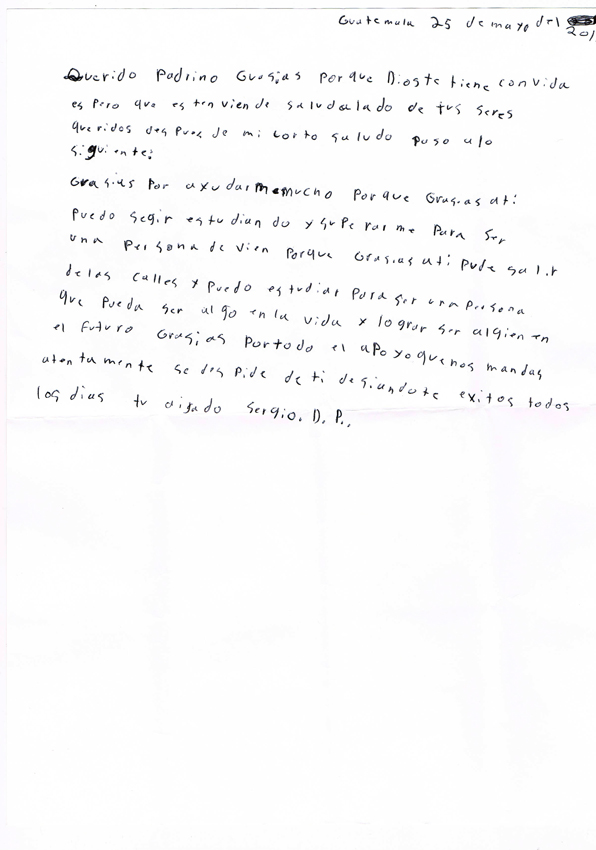 Guatemala 25 de mayo del
201
Querido Padrino Grasias porque Dioste tiene convida
espero que esten viende saludalado de tus seres
queridos despues de mi corto saludo paso alo
siguiente:
Grasias por axudarmemucho porque Grasias ati
puedo segir estudiando xsuperarme para ser
una persona de vien porque Grasias ati pude salir
delas calles x puedo estudiar para ser una persona
que pueda ser algo en la vida x lograr ser algien en
el futuro Grasias portodo el apoyo quenos mandas
atentamente se despide de ti desiandote exitos todos
los dias tu aijado Sergio. D. P..